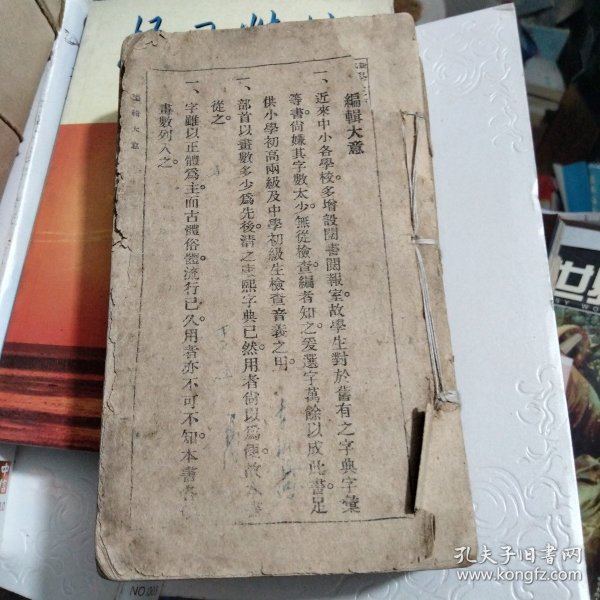 編輯大意
一、近來中小各學校。多增設閱書閱報室。故學生對於舊有之字典字彙
等書。尙嫌其字數太少。無從檢查。編者知之。爰選字萬餘。以成此書。足
供小學初高兩級及中學初級生檢查音義之用。
一、部首以畫數多少爲先後。淸之康熙字典已然。用者尙以爲便。故本書
從之。
一、字雖以正體爲主。而古體俗體。流行已久。用者亦不可不知。本書各
畫數列入之。
編輯大意
世界
NO.003
孔夫子旧书网
www.kongfz.com